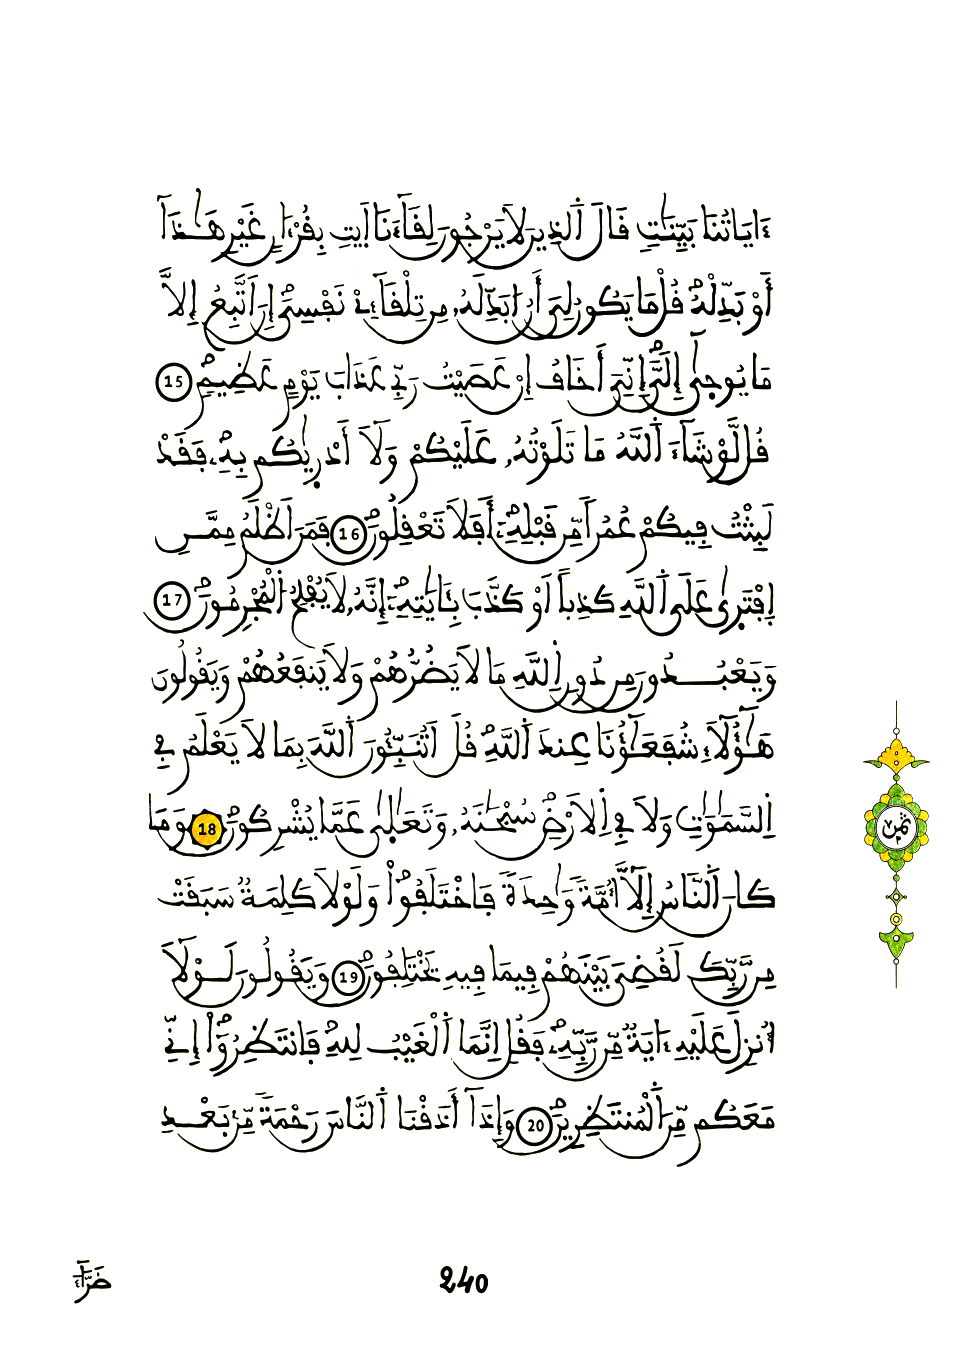 ءَايَاتُنَا بَيِّنَٰتٖ قَالَ ٱلذِينَ لَا يَرْجُونَ لِقَآءَنَا ٱيتِ بِقُرْءَانٍ غَيْرِ هَٰذَآ
أَوْ بَدِّلْهُۖ قُلْ مَا يَكُونُ لِيَ أَنُ ابَدِّلَهُۥ مِن تِلْقَآءِےْ نَفْسِيَۖ إِنَ اَتَّبِعُ إِلَّا
مَا يُوحَىٰٓ إِلَيَّۖ إِنِّيَ أَخَافُ إِنْ عَصَيْتُ رَبِّے عَذَابَ يَوْمٍ عَظِيمٖۖ 15
قُل لَّوْ شَآءَ ٱللَّهُ مَا تَلَوْتُهُۥ عَلَيْكُمْ وَلَآ أَدْر۪يٰكُم بِهِۦۖ فَقَدْ
لَبِثْتُ فِيكُمْ عُمُراٗ مِّن قَبْلِهِۦٓۖ أَفَلَا تَعْقِلُونَۖ 16 فَمَنَ اَظْلَمُ مِمَّنِ
اِفْتَر۪ىٰ عَلَى ٱللَّهِ كَذِباً أَوْ كَذَّبَ بِـَٔايَٰتِهِۦٓۖ إِنَّهُۥ لَا يُفْلِحُ ٱلْمُجْرِمُونَۖ 17
وَيَعْبُدُونَ مِن دُونِ اِللَّهِ مَا لَا يَضُرُّهُمْ وَلَا يَنفَعُهُمْ وَيَقُولُونَ
هَٰٓؤُلَآءِ شُفَعَٰٓؤُنَا عِندَ ٱللَّهِۖ قُلَ اَتُنَبِّـُٔونَ ٱللَّهَ بِمَا لَا يَعْلَمُ فِے
اِلسَّمَٰوَٰتِ وَلَا فِے اِلَارْضِۖ سُبْحَٰنَهُۥ وَتَعَٰلَىٰ عَمَّا يُشْرِكُونَۖ 18 وَمَا
كَانَ ٱلنَّاسُ إِلَّآ أُمَّةٗ وَٰحِدَةٗ فَاخْتَلَفُواْۖ وَلَوْلَا كَلِمَةٞ سَبَقَتْ
مِن رَّبِّكَ لَقُضِيَ بَيْنَهُمْ فِيمَا فِيهِ يَخْتَلِفُونَۖ 19 وَيَقُولُونَ لَوْلَآ
أُنزِلَ عَلَيْهِ ءَايَةٞ مِّن رَّبِّهِۦۖ فَقُلِ اِنَّمَا ٱلْغَيْبُ لِلهِ فَانتَظِرُوٓاْۖ إِنِّے
مَعَكُم مِّنَ ٱلْمُنتَظِرِينَۖ 20 وَإِذَآ أَذَقْنَا ٱلنَّاسَ رَحْمَةٗ مِّنۢ بَعْدِ
ثمن
ضَرَّآءَ
240